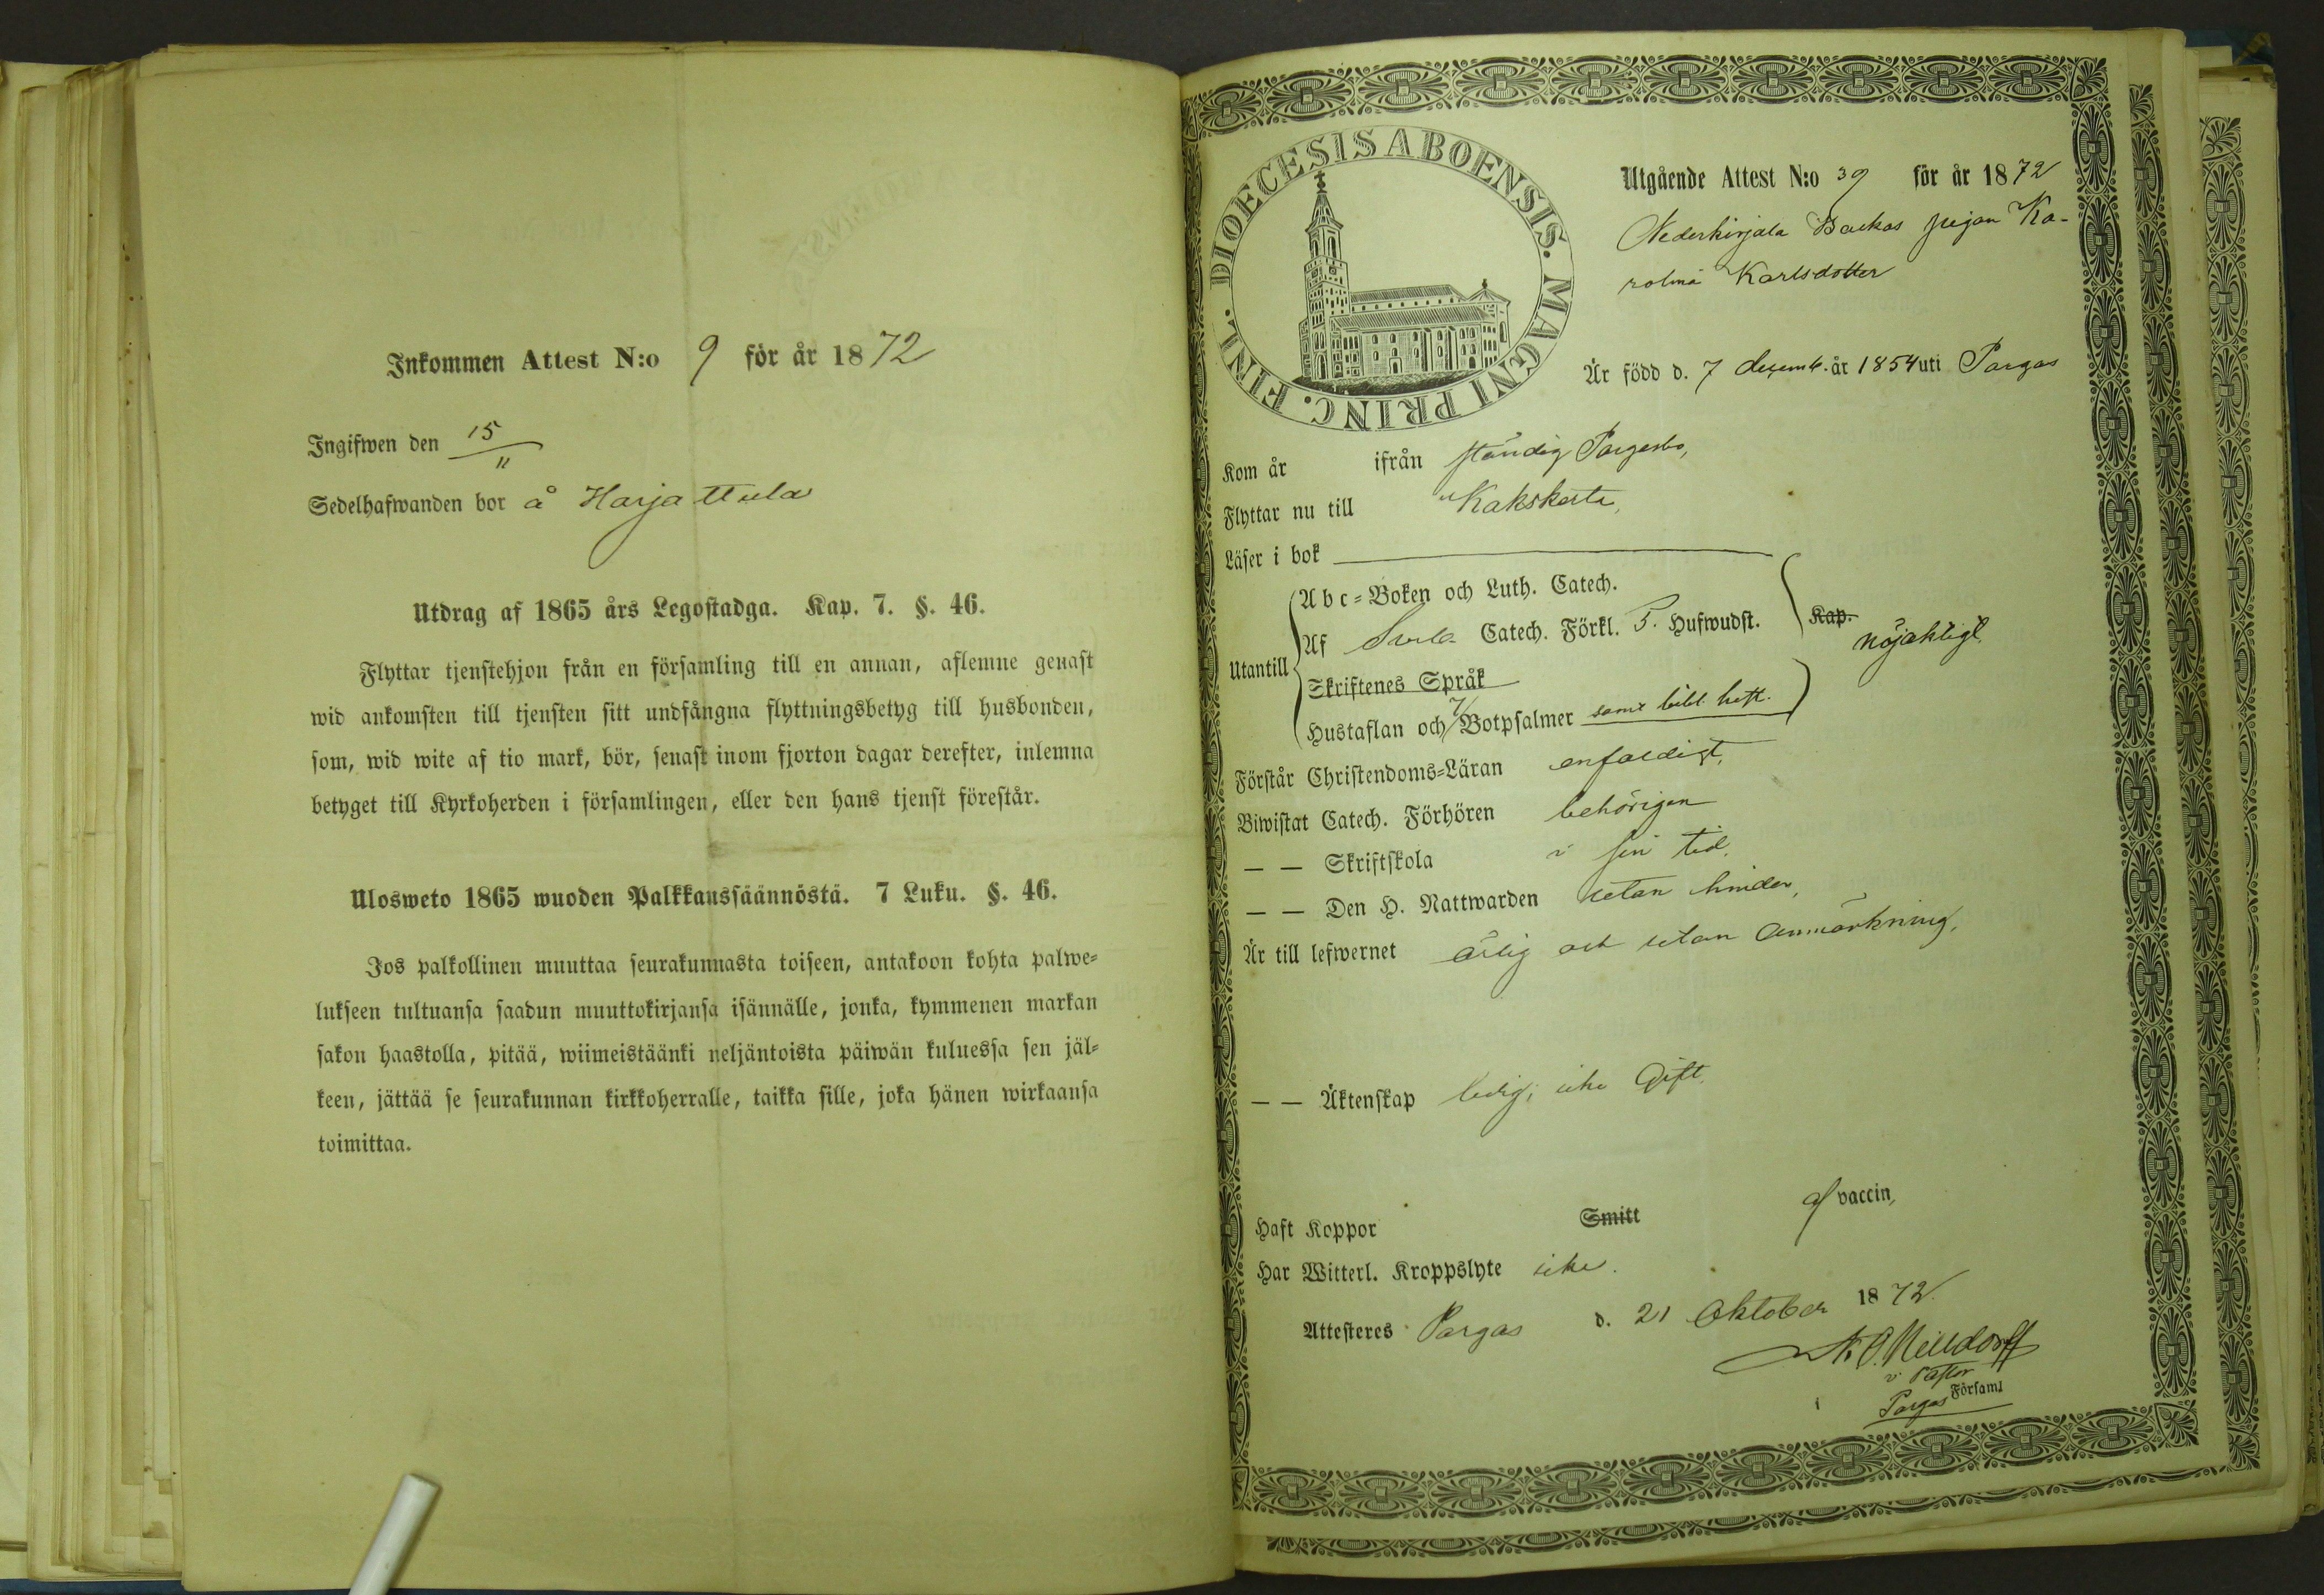 Inkommen Attest N:o 9 för år 1872
Ingifwen den 15/11
Sedelhafwanden bor å Harjattula
Utdrag af 1865 års Legostadga. Kap. 7. §. 46.
Flyttar tjenstehjon från en församling till en annan, aflemne genast
wid ankomsten till tjensten sitt undfångna flyttningsbetyg till husbonden,
som, wid wite af tio mark, bör, senast inom fjorton dagar derefter, inlemna
betyget till Kyrkoherden i församlingen, eller den hans tjenst förestår.
Ulosweto 1865 wuoden Palkkaussäännöstä. 7 Luku. §. 46.
Jos palkollinen muuttaa seurakunnasta toiseen, antakoon kohta palwe-
lukseen tultuansa saadun muuttokirjansa isännälle, jonka, kymmenen markan
sakon haastolla, pitää, wiimeistäänki neljäntoista päiwän kuluessa sen jäl-
keen, jättää se seurakunnan kirkkoherralle, taikka sille, joka hänen wirkaansa
toimittaa.
DIOECESIS ABOENSIS. MAGNI PRINC. FINL.
Utgående Attest N:o 39 för år 1872
Nederkirjala Backas pigan Ka-
rolina Karlsdotter
Är född d. 7 decemb. år 1854 uti Pargas
Kom år ifrån ständig Pargasbo,
Flyttar nu till Kakskerta,
Läser i bok
Utantill
Abc-Boken och Luth. Catech.
Af Svebil. Catech. Förkl. 5. Hufwudst. Kap. nöjaktigt
Skriftenes Språk
Hustaflan och 7 Botpsalmer samt bibl. hist.
Förstår Christendoms-Läran enfaldigt,
Biwistat Catech. Förhören behörigen
— — Skriftskola i sin tid.
— — Den H. Nattwarden utan hinder,
Är till lefwernet ärlig och utan anmärkning,
— — Äktenskap ledig, icke gift.
Haft Koppor Smitt af vaccin,
Har Witterl. Kroppslyte icke.
Attesteres Pargas d. 21 Oktober 1872
v Pastor
i Pargas Församl